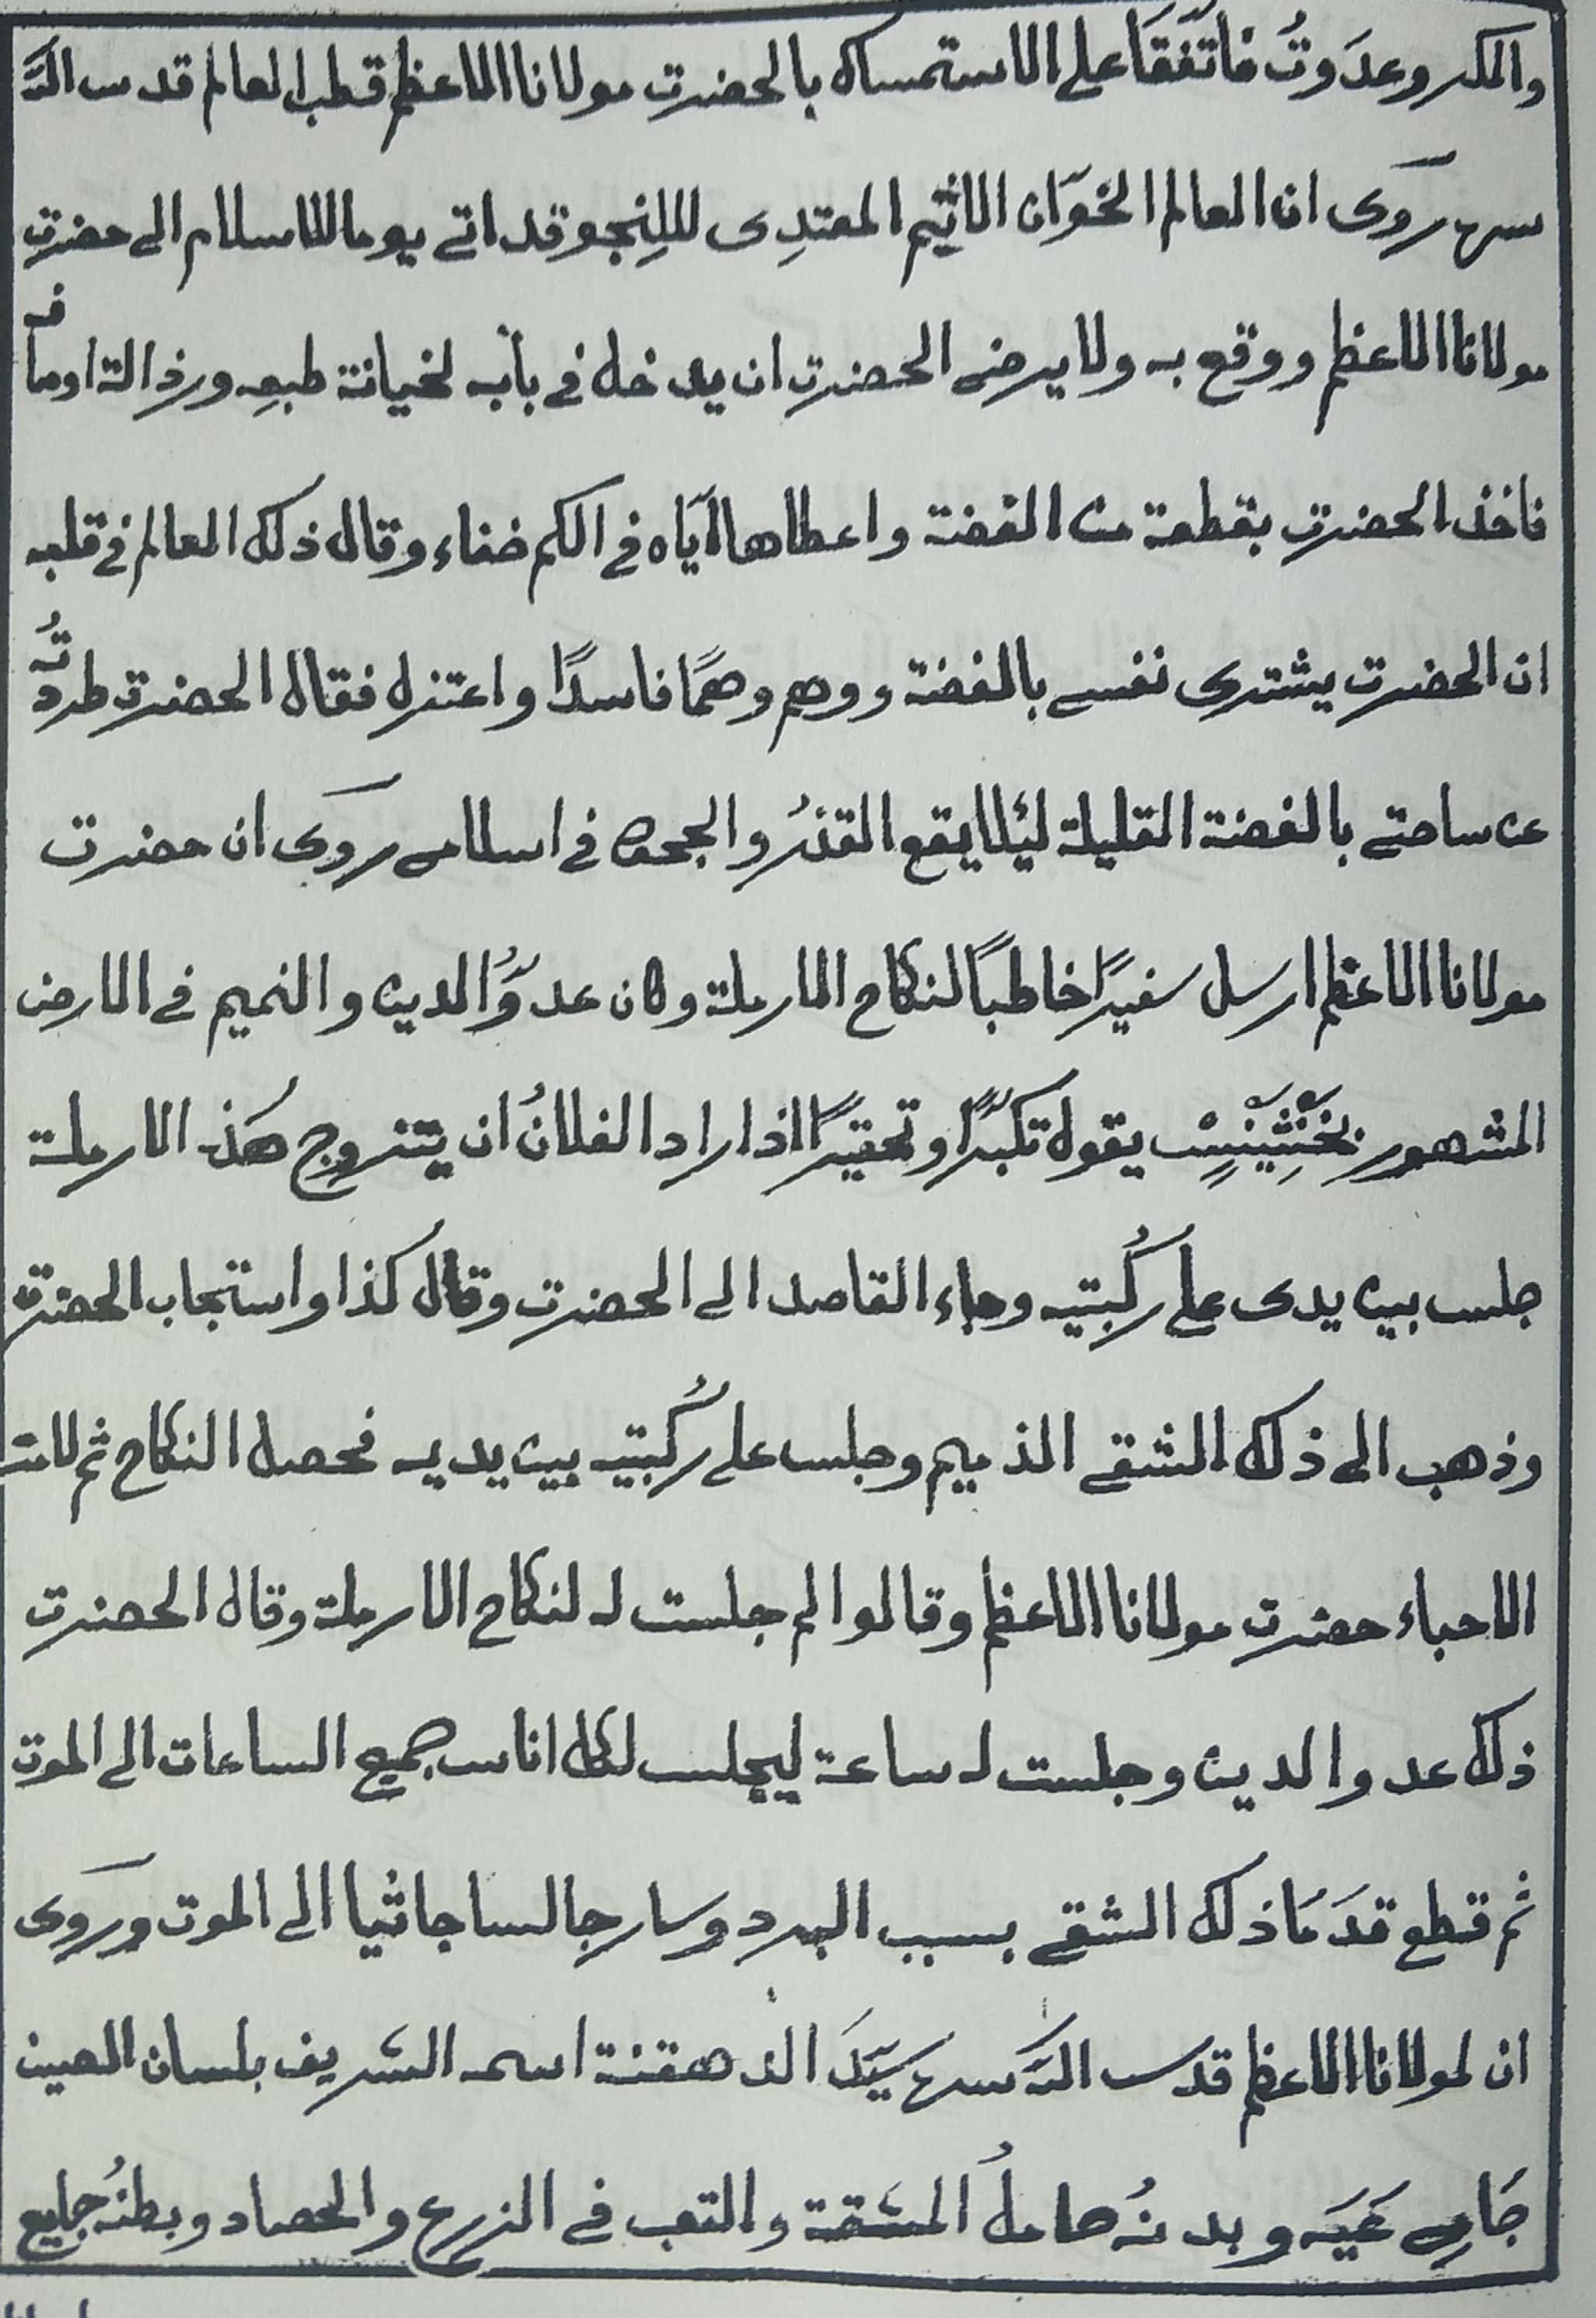 والمكر وعدَوتُ فاتّفقَا على الاستمساك بالحضرت مولانا الاعظم قطب العالم قدس اللّٰه
سره روَى ان العالم الخوّان الاثيم المعتدِى للِنجو قد اتى يوما للاسلام الى حضرت
مولانا الاعظم ووقع به ولا يرضى الحضرت ان يدخل فى بابه لخيانة طبعِه ورذالة اوصافه
فاخذ الحضرت بقطعة من الفضة واعطاها ايّاه فى الكم خفاء وقال ذلك العالم فى قلبه
ان الحضرت يشترى نفسى بالفضة ووهم وهمًا فاسدًا واعتزل فقال الحضرت طردتُه
عن ساحتى بالفضة القليلة ليئلا يقع القذرُ والجحه فى اسلامى روَى ان حضرت
مولانا الاعظم ارسل سفيرًا خاطبًا لنكاح الارملة وكان عدوُّ الدين والنميم فى الارض
المشهور يقول تكبّرًا وتحقيرًا اذا اراد الفلانُ ان يتزوج هَذه الارملة
جلس بين يدى على رُكبتيه وجاء القاصد الى الحضرت وقال كذا واستجاب الحضرت
وذهب الى ذلك الشقى الذميم وجلس على رُكبتيه بين يديه فحصل النكاح ثم لامت
الاحباء حضرت مولانا الاعظم وقالوا لم جلست له لنكاح الارملة وقال الحضرت
ذلك عدو الدين وجلست له ساعة ليجلس لكل اناس جميع الساعات الى الموت
ثم قطع قدَمَا ذلك الشقى بسبب البرد وسار جالسا جاثيا الى الموت وروَى
ان لمولانا الاعظم قدس اللّٰه سره سيّدَ الدهقنة اسمه الشريف بلسان الصين
جَامِى عَيَه وبدنُه حاملُ المشقة والتعب فى الزرع والحصاد وبطنُه جايع